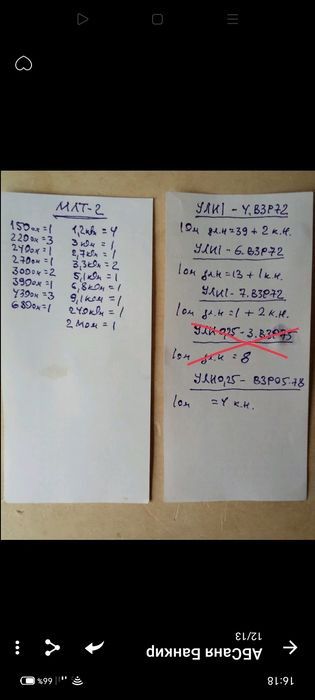 МЛТ-2
150ом=1
220ом=3
240ом=1
270ом=1
300ом=2
390ом=1
430ом=3
680ом=1
1,2ком=4
3 ком=1
2,7ком=1
3,3ком=2
5,1ком=1
6,8ком=1
9,1ком=1
240ком=1
2 мом=1
УЛИ1 - 4.ВЗР72
1Ом дл.н=39+2 к.н.
УЛИ1 - 6.ВЗР72
1ом дл.н=13+1к.н.
УЛИ1 - 7.ВЗР72
1ом дл.н=1+2 к.н.
УЛИ0,25-3.ВЗР75
1ом дл.н=8
УЛИ0,25-ВЗР05.78
1ом =4 к.н.
АБСаня Банкир
12/13
16:18